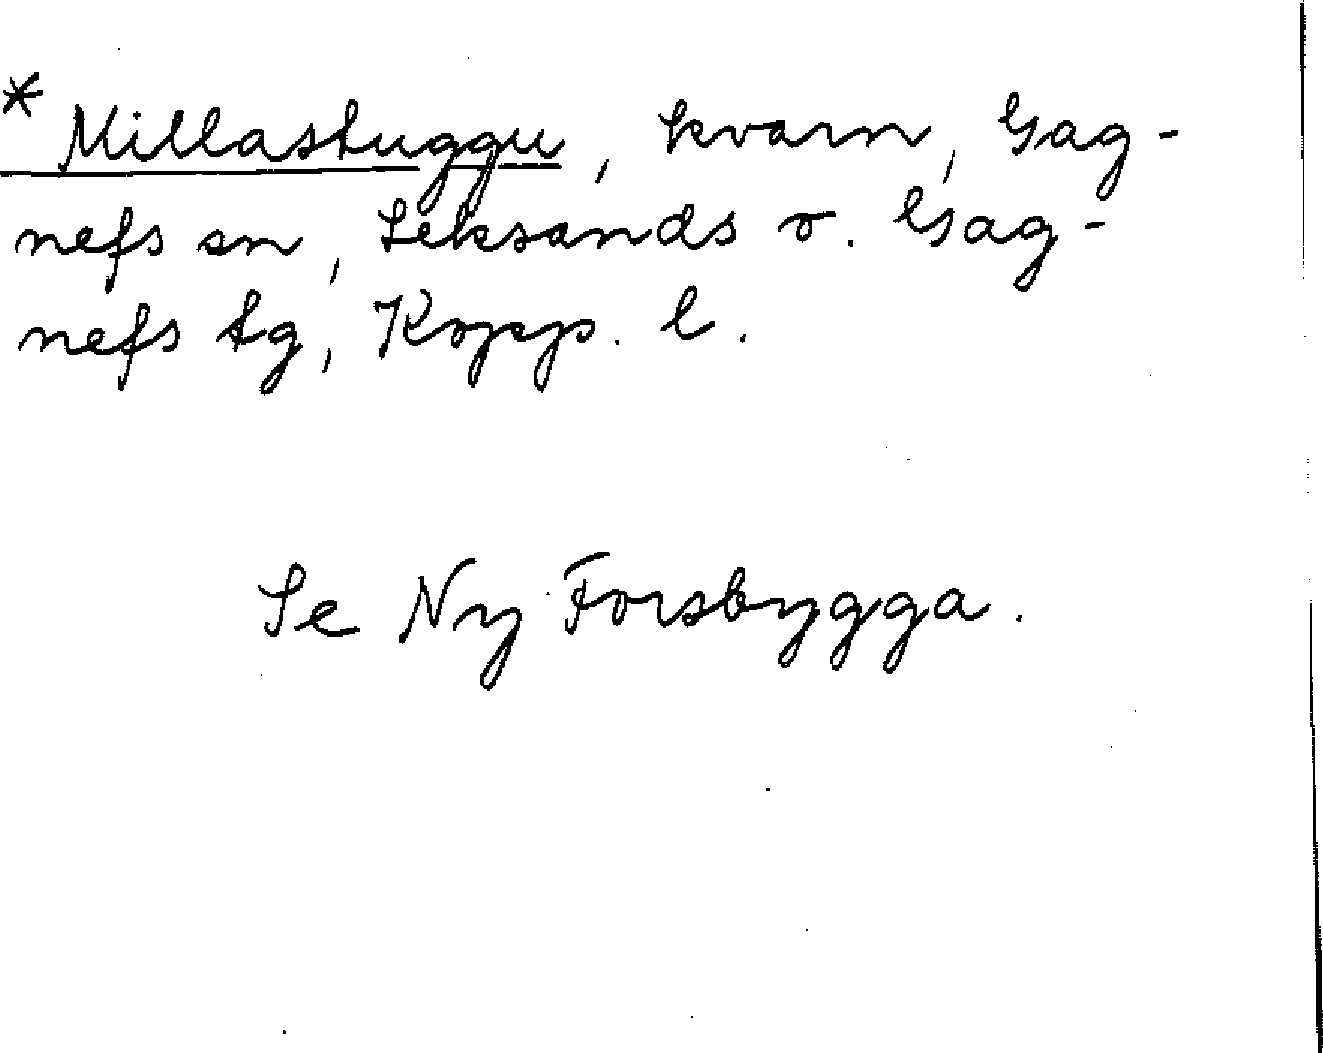 * Millastuggu, kvarn, Gag-
nefs sn, Leksands o. Gag-
nefs tg, Kopp. l.
Se Ny Forsbygga.